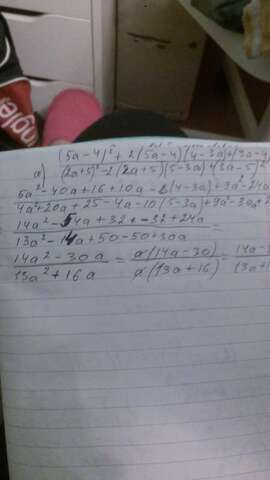 (5a-4)² + 2(5a-4)(4-3a)+(3a-4
a) (2a+5)²-2(2a+5)(5-3a)+(3a-5)²
5a²-40a+16+10a-8(4-3a)+9a²-24a
4a²+20a+25-4a-10(5-3a)+9a²-30a+2
14a²-54a+32-32+24a =
13a²-14a+50-50+30a
14a²-30a = a(14a-30) = 14a-
13a²+16a a(13a+16) 13a+